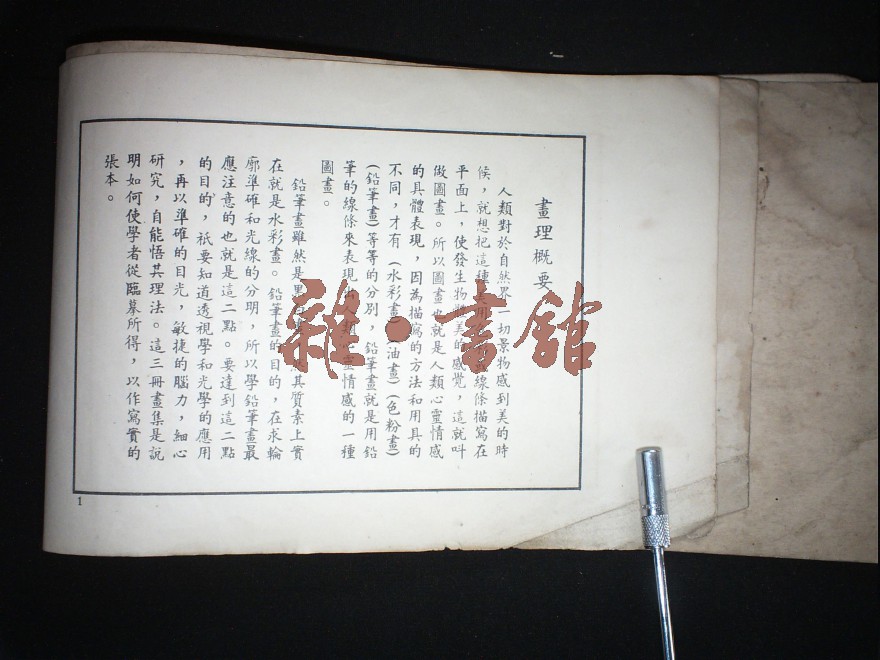 畫理概要
人類對於自然界一切景物感到美的時
候，就想把這種 用 線條描寫在
平面上，使發生物 美的感覺，這就叫
做圖畫。所以圖畫也就是人類心靈情感
的具體表現，因為描寫的方法和用具的
不同，才有(水彩畫)(油畫)(色粉畫)
(鉛筆畫)等等的分別，鉛筆畫就是用鉛
筆的線條來表現出人類心靈情感的一種
圖畫。
鉛筆畫雖然是黑 其質素上實
在就是水彩畫。鉛筆畫的目的，在求輪
廓準確和光線的分明，所以學鉛筆畫最
應注意的也就是這二點。要達到這二點
的目的，祇要知道透視學和光學的應用
，再以準確的目光，敏捷的腦力，細心
研究，自能悟其理法。這三冊畫集是說
明如何使學者從臨摹所得，以作寫實的
張本。
1
雜·書館